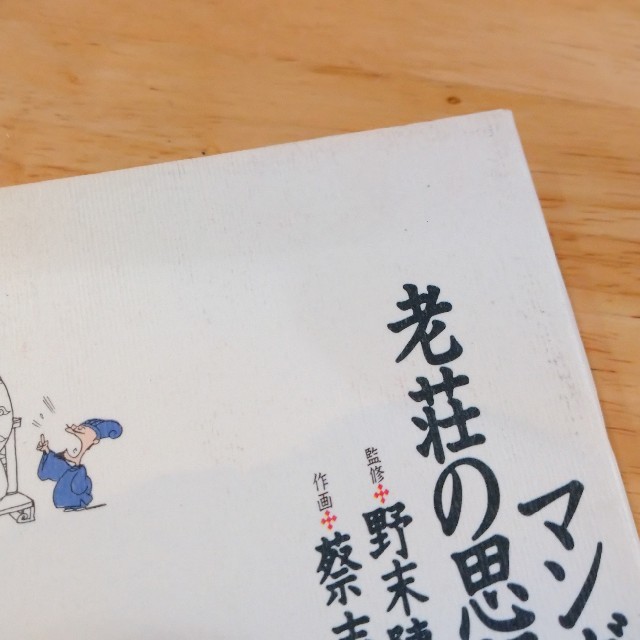 マンガ
老荘の思
監修 野末
作画 蔡